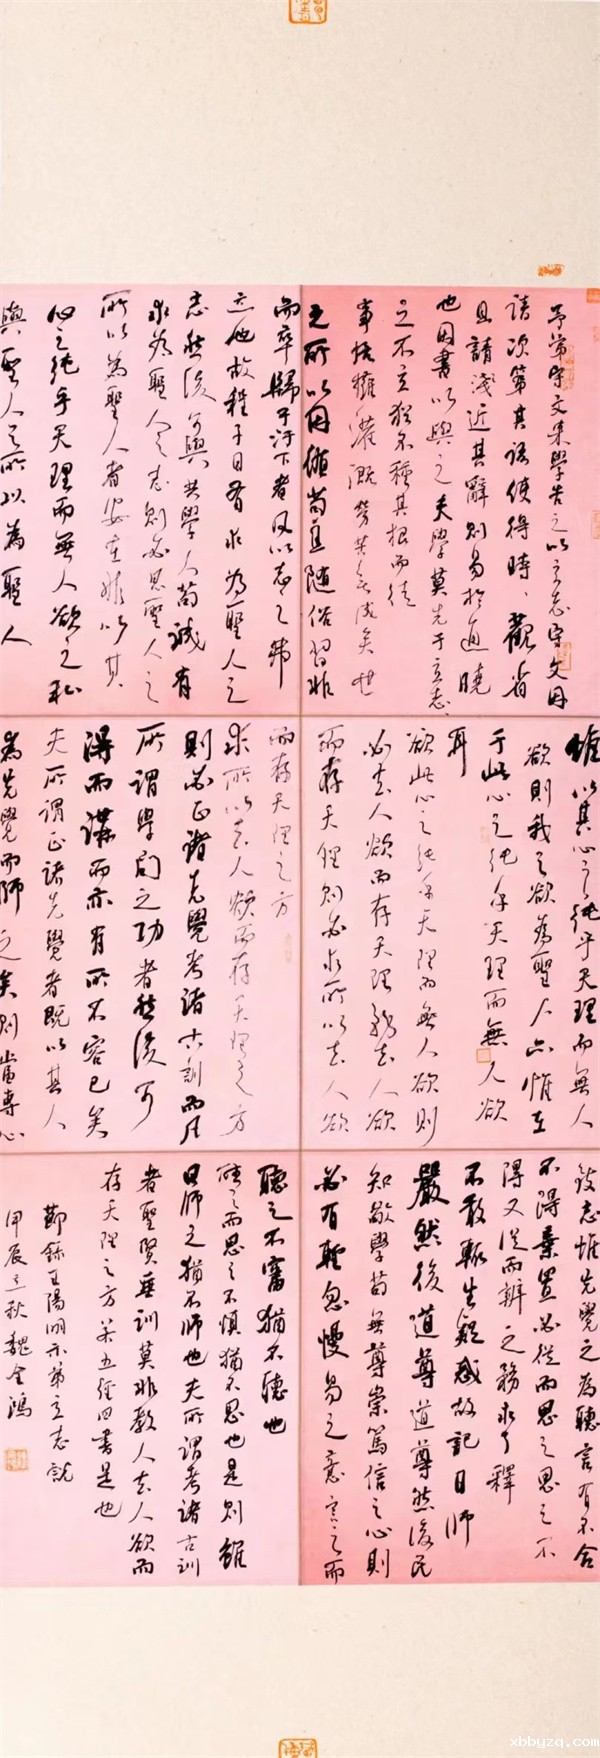 予弟守文来學告之以立志守文因
請次第其語使得時、觀省
且請淺近其辭則易於通曉
也因書以與之夫學莫先于立志志
之不立猶不種其根而徒
事培擁灌溉勞苦無成矣世
之所以因循苟且隨俗習非
而卒歸于汙下者凡以志之弗
立也故程子曰有求為聖人之
志然後可與共學人苟誠有
求為聖人之志則必思聖人之
所以為聖人者安在非以其
心之純乎天理而無人欲之私
與聖人之所以為聖人
惟以其心之純乎天理而無人
欲則我之欲為聖人亦惟在
于此心之純乎天理而無人欲
耳
欲此心之純乎天理而無人欲則
必去人欲而存天理務去人欲
而存天理則必求所以去人欲
而存天理之方
求所以去人欲而存天理之方
則必正諸先覺考諸古訓而凡
所謂學問之功者然後可
得而講而亦有所不容已矣
夫所謂正諸先覺者既以其人
為先覺而師之矣則當專心
致志惟先覺之為聽言有不合
不得棄置必從而思之思之不
得又從而辨之務求了釋
不敢輒生疑惑故記曰師
嚴然後道尊道尊然後民
知敬學苟無尊崇篤信之心則
必有輕忽慢易之意言之而
聽之不審猶不聽也
聽之而思之不慎猶不思也是則雖
曰師之猶不師也夫所謂考諸古訓
者聖賢垂訓莫非教人去人欲而
存天理之方若五經四書是也
節錄王陽明示弟立志說
甲辰之秋魏金鴻
xbbyzq.com